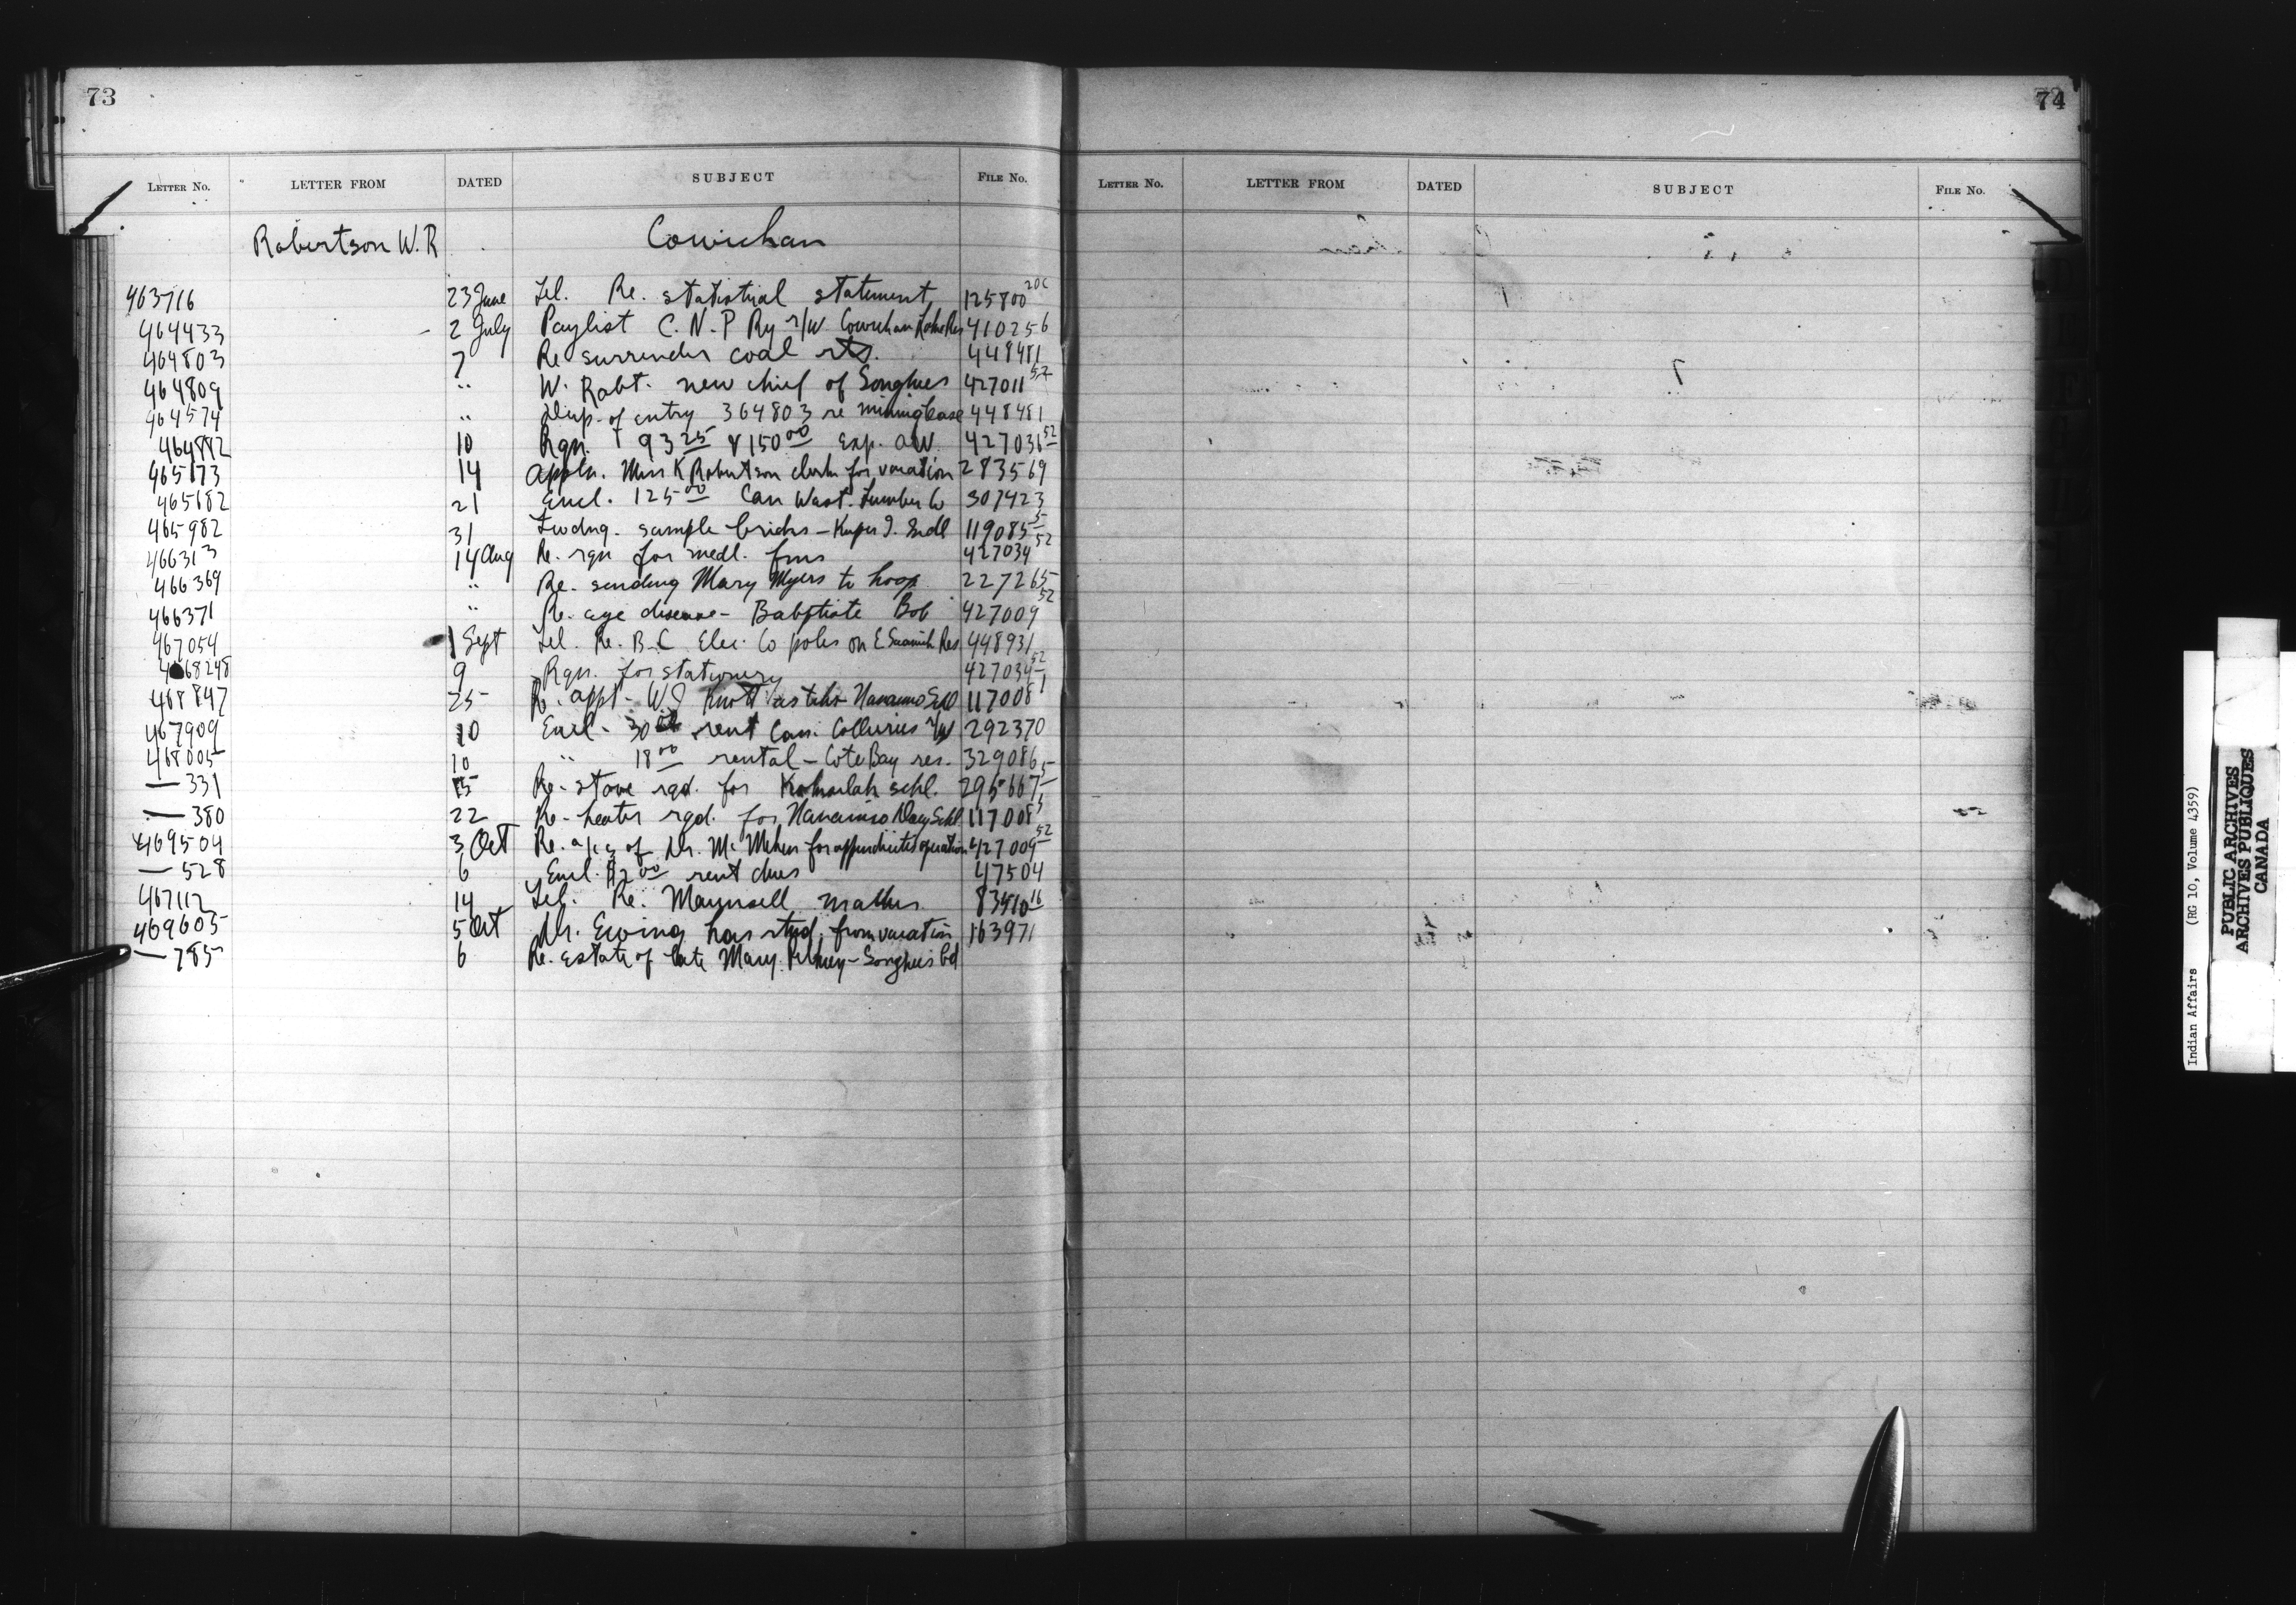 73
LETTER NO. LETTER FROM DATED SUBJECT FILE No.
Robertson W. R Cowichan
463716 23 June Tel. Re. statistical statement, 125800 20C
464433 2 July Paylist C. N. P Ry r/w. Cowichan Lake Res 410256
464803 7 Re surrender coal rts. 448481
464809 " W. Robt. new chief of Songhees 427011 52
464574 " Disp. of entry 364803 re mining lease 448481
464882 10 Rqn. 93 25 & 150 00 exp. 427036 52
465173 14 Appln. Miss K Robertson clerk for vacation 283569
465682 21 Encl. 125 00 Can West. Lumber Co 307423
465982 31 Fwdng. sample bricks – Kuper I. Indl 119085 5
466313 14 Aug Re. rqn for medl. 427034 52
466369 " Re. sending Mary Myers to hosp. 227265
466371 " Re. eye disease – Babptiste Bob 427009 52
467054 1 Sept Tel. Re. B.C Elec. Co poles on E Saanich Res 448931
468248 9 Rqn. for stationery 427034 52
468847 25 Re. appt. W.J Knott as tchr Nanaimo Schl 117008 1
467909 10 Encl – 30 00 rent Can. Collieries r/w 292370
468005 10 " 18 00 rental – Cote Bay res. 329086
— 331 15 Re. stove rqd. for schl. 295667 5
— 380 22 Re- heater rqd. for Nanaimo Day Schl 117008 5
469504 3 Oct Re. a/c of Dr. for appendicitis operation 427009 52
— 528 6 Encl. $2 00 rent dues 47504
467112 14 Tel. Re. Maunsell matter 83510 16
469605 5 Oct Dr. Ewing has rtnd. from vacation 163971
— 785 6 Re. Estate of late Mary – Songhees bd
74
LETTER NO. LETTER FROM DATED SUBJECT FILE No.
Indian Affairs (RG 10, Volume 4359)
PUBLIC ARCHIVES
ARCHIVES PUBLIQUES
CANADA